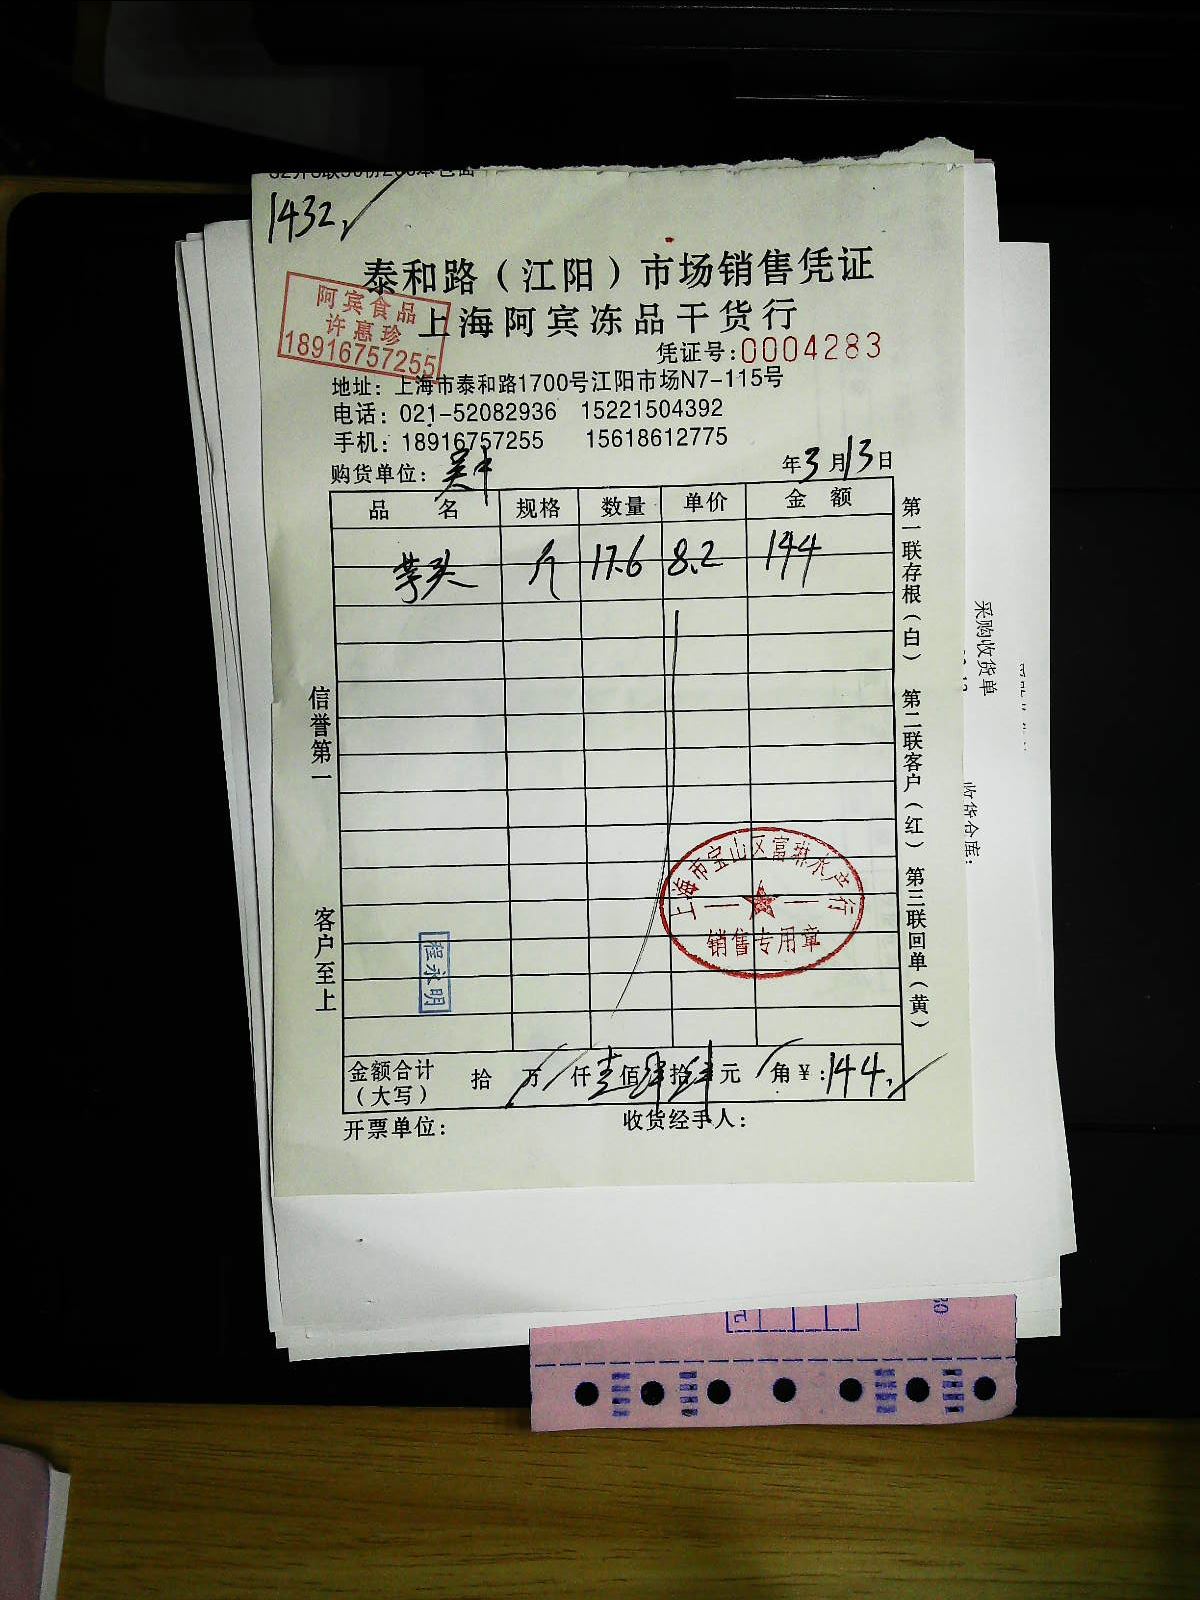 1432
泰和路（江阳）市场销售凭证
上海阿宾冻品干货行
阿宾食品
许惠珍
18916757255
凭证号:0004283
地址：上海市泰和路1700号江阳市场N7-115号
电话：021-52082936 15221504392
手机：18916757255 15618612775
购货单位：吴中 年3月13日
品 名 规格 数量 单价 金 额
芋头 斤 17.6 8.2 144
第一联存根（白） 第二联客户（红） 第三联回单（黄）
信誉第一 客户至上
上海市宝山区富琳水产行
销售专用章
程永明
金额合计（大写） 拾 万 仟 壹佰肆拾肆元 角¥:144.
开票单位： 收货经手人：
采购收货单
收货仓库：